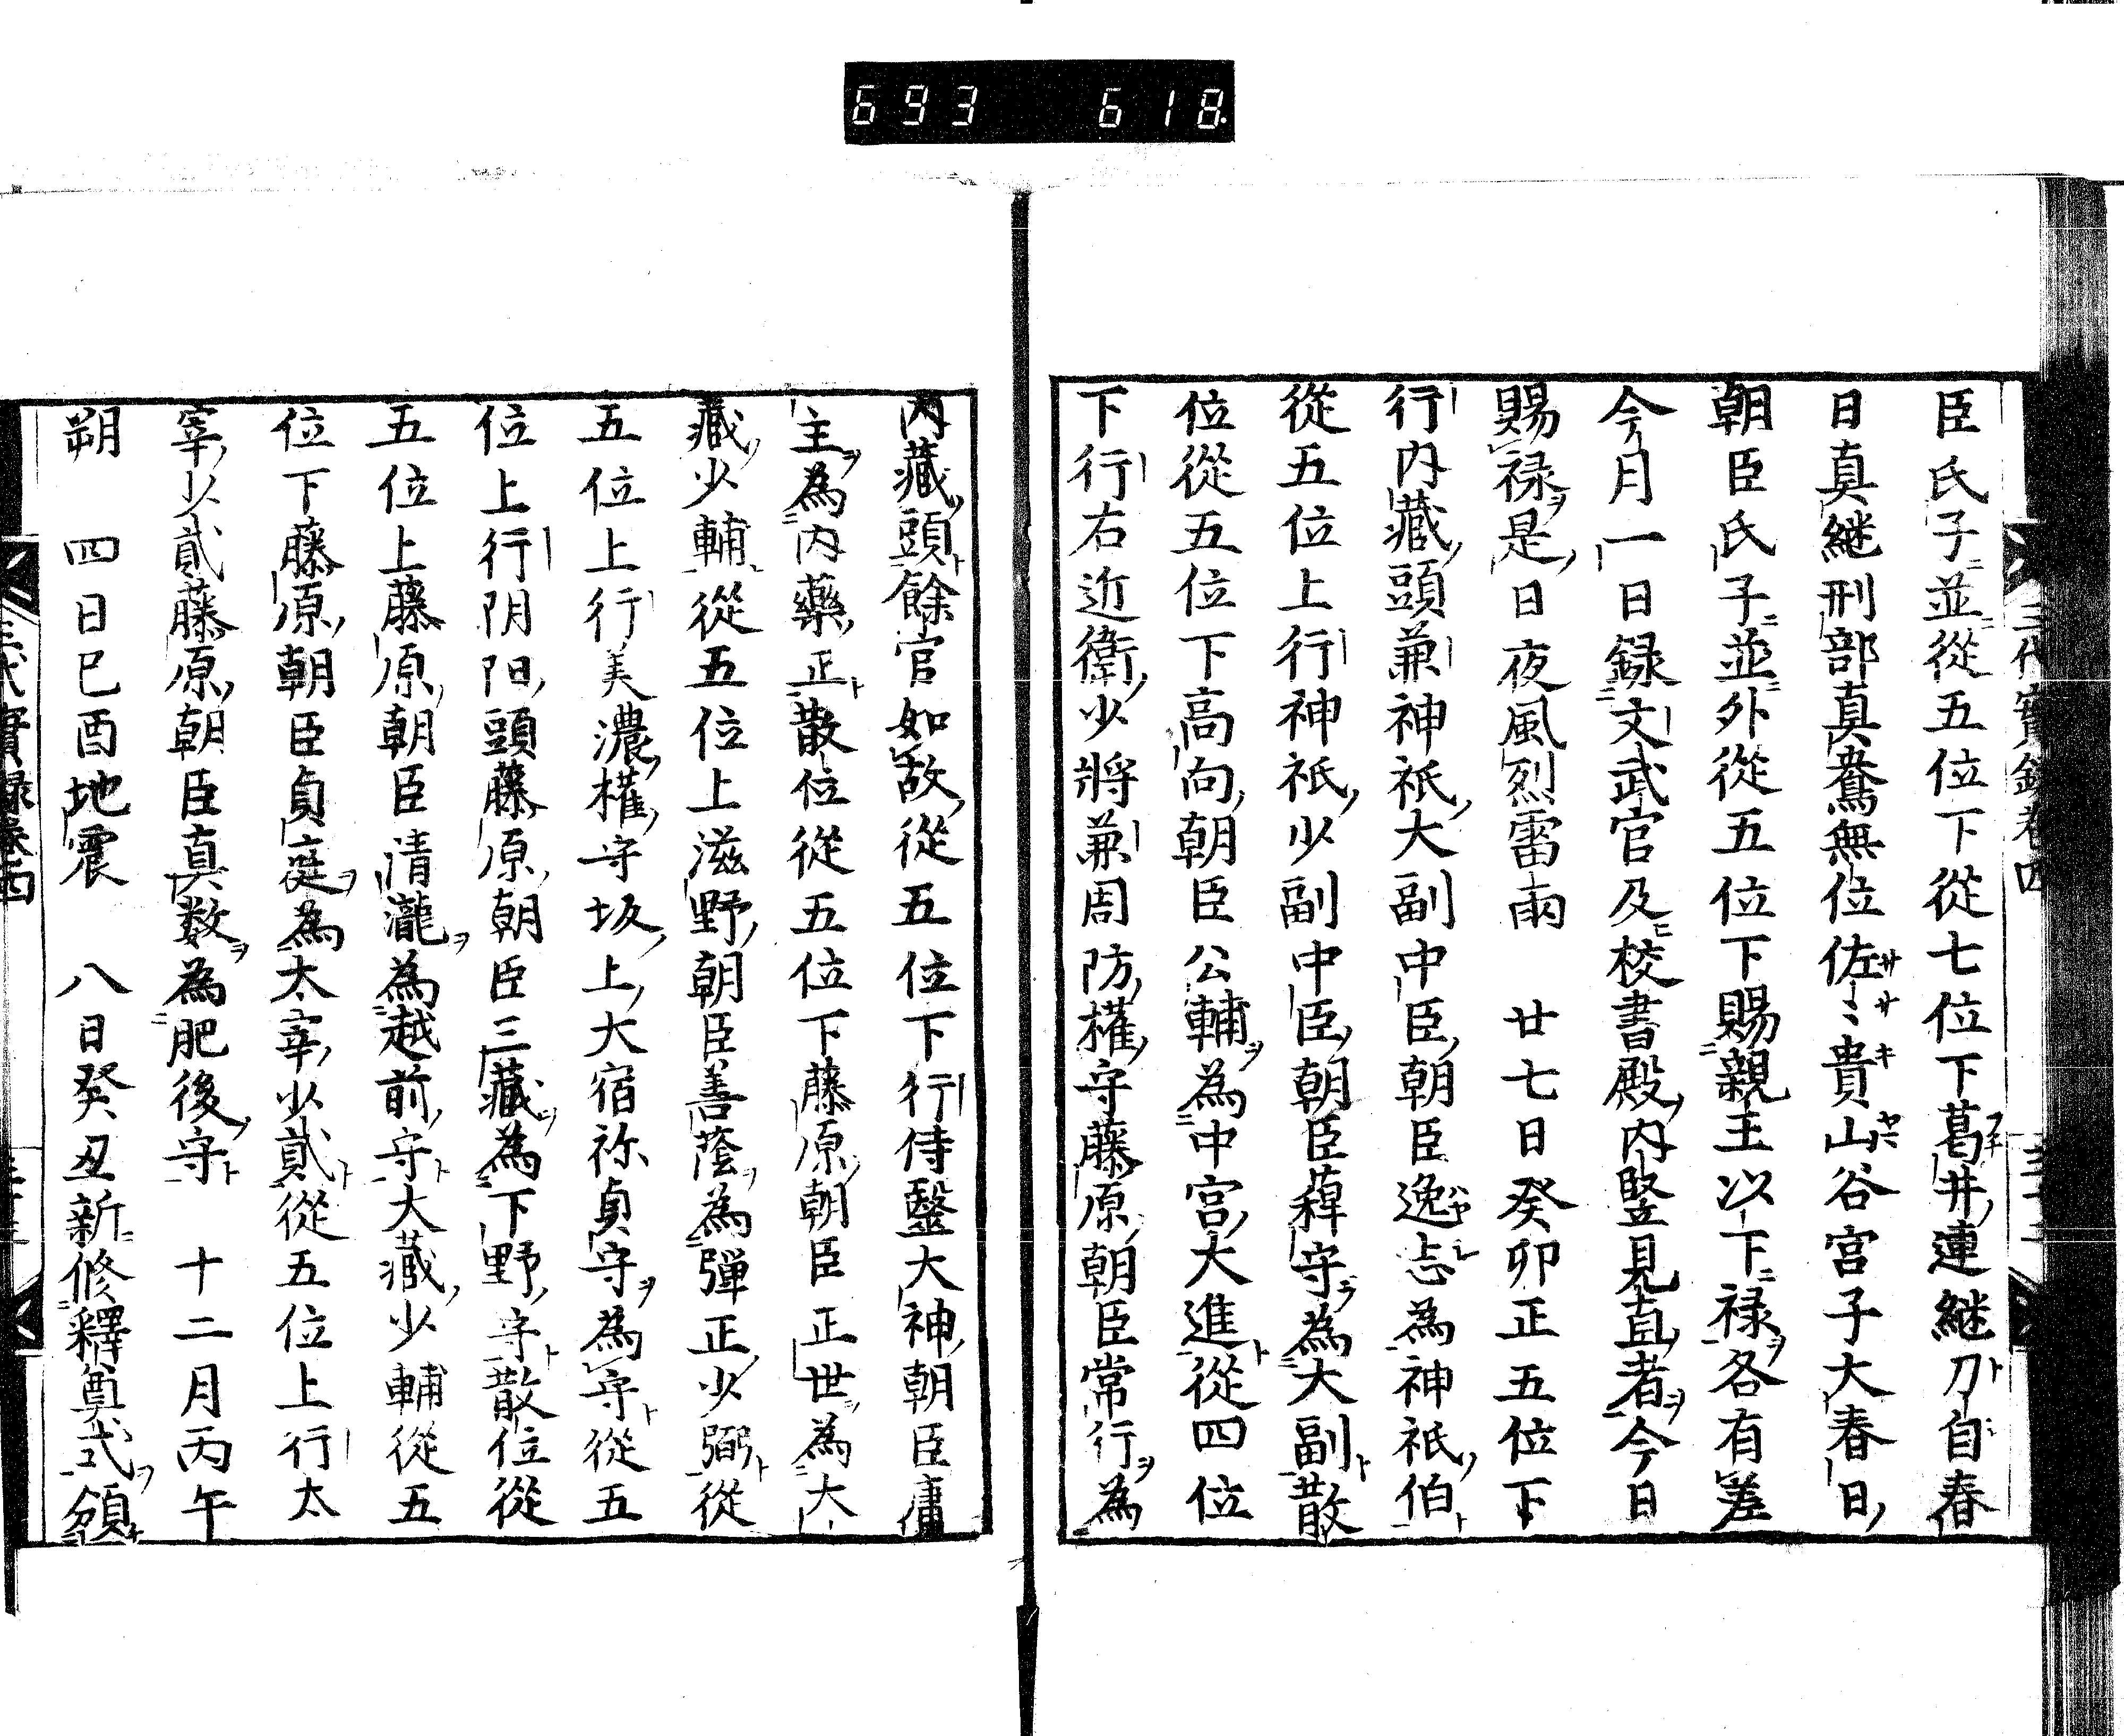 693 618
臣氏子並從五位下從七位下葛井連継刀自春
日真継刑部真鴦無位佐〻貴山谷宮子大春日
朝臣氏子並外從五位下賜親王以下禄各有差
今月一日録文武官及校書殿内竪見直者今日
賜禄是日夜風烈雷雨 廿七日癸卯正五位下
行内藏頭兼神祇大副中臣朝臣逸志為神祇伯
從五位上行神祇少副中臣朝臣薭守為大副散
位從五位下高向朝臣公輔為中宮大進從四位
下行右近衛少將兼周防權守藤原朝臣常行為
内藏頭餘官如故從五位下行侍毉大神朝臣庸
主為内藥正散位從五位下藤原朝臣正世為大
藏少輔從五位上滋野朝臣善蔭為彈正少弼從
五位上行美濃權守坂上大宿祢貞守為守從五
位上行阴阳頭藤原朝臣三藏為下野守散位從
五位上藤原朝臣清瀧為越前守大藏少輔從五
位下藤原朝臣貞庭為太宰少貳從五位上行太
宰少貳藤原朝臣真数為肥後守 十二月丙午
朔 四日巳酉地震 八日癸丑新修釋奠式頒
三代實録卷四